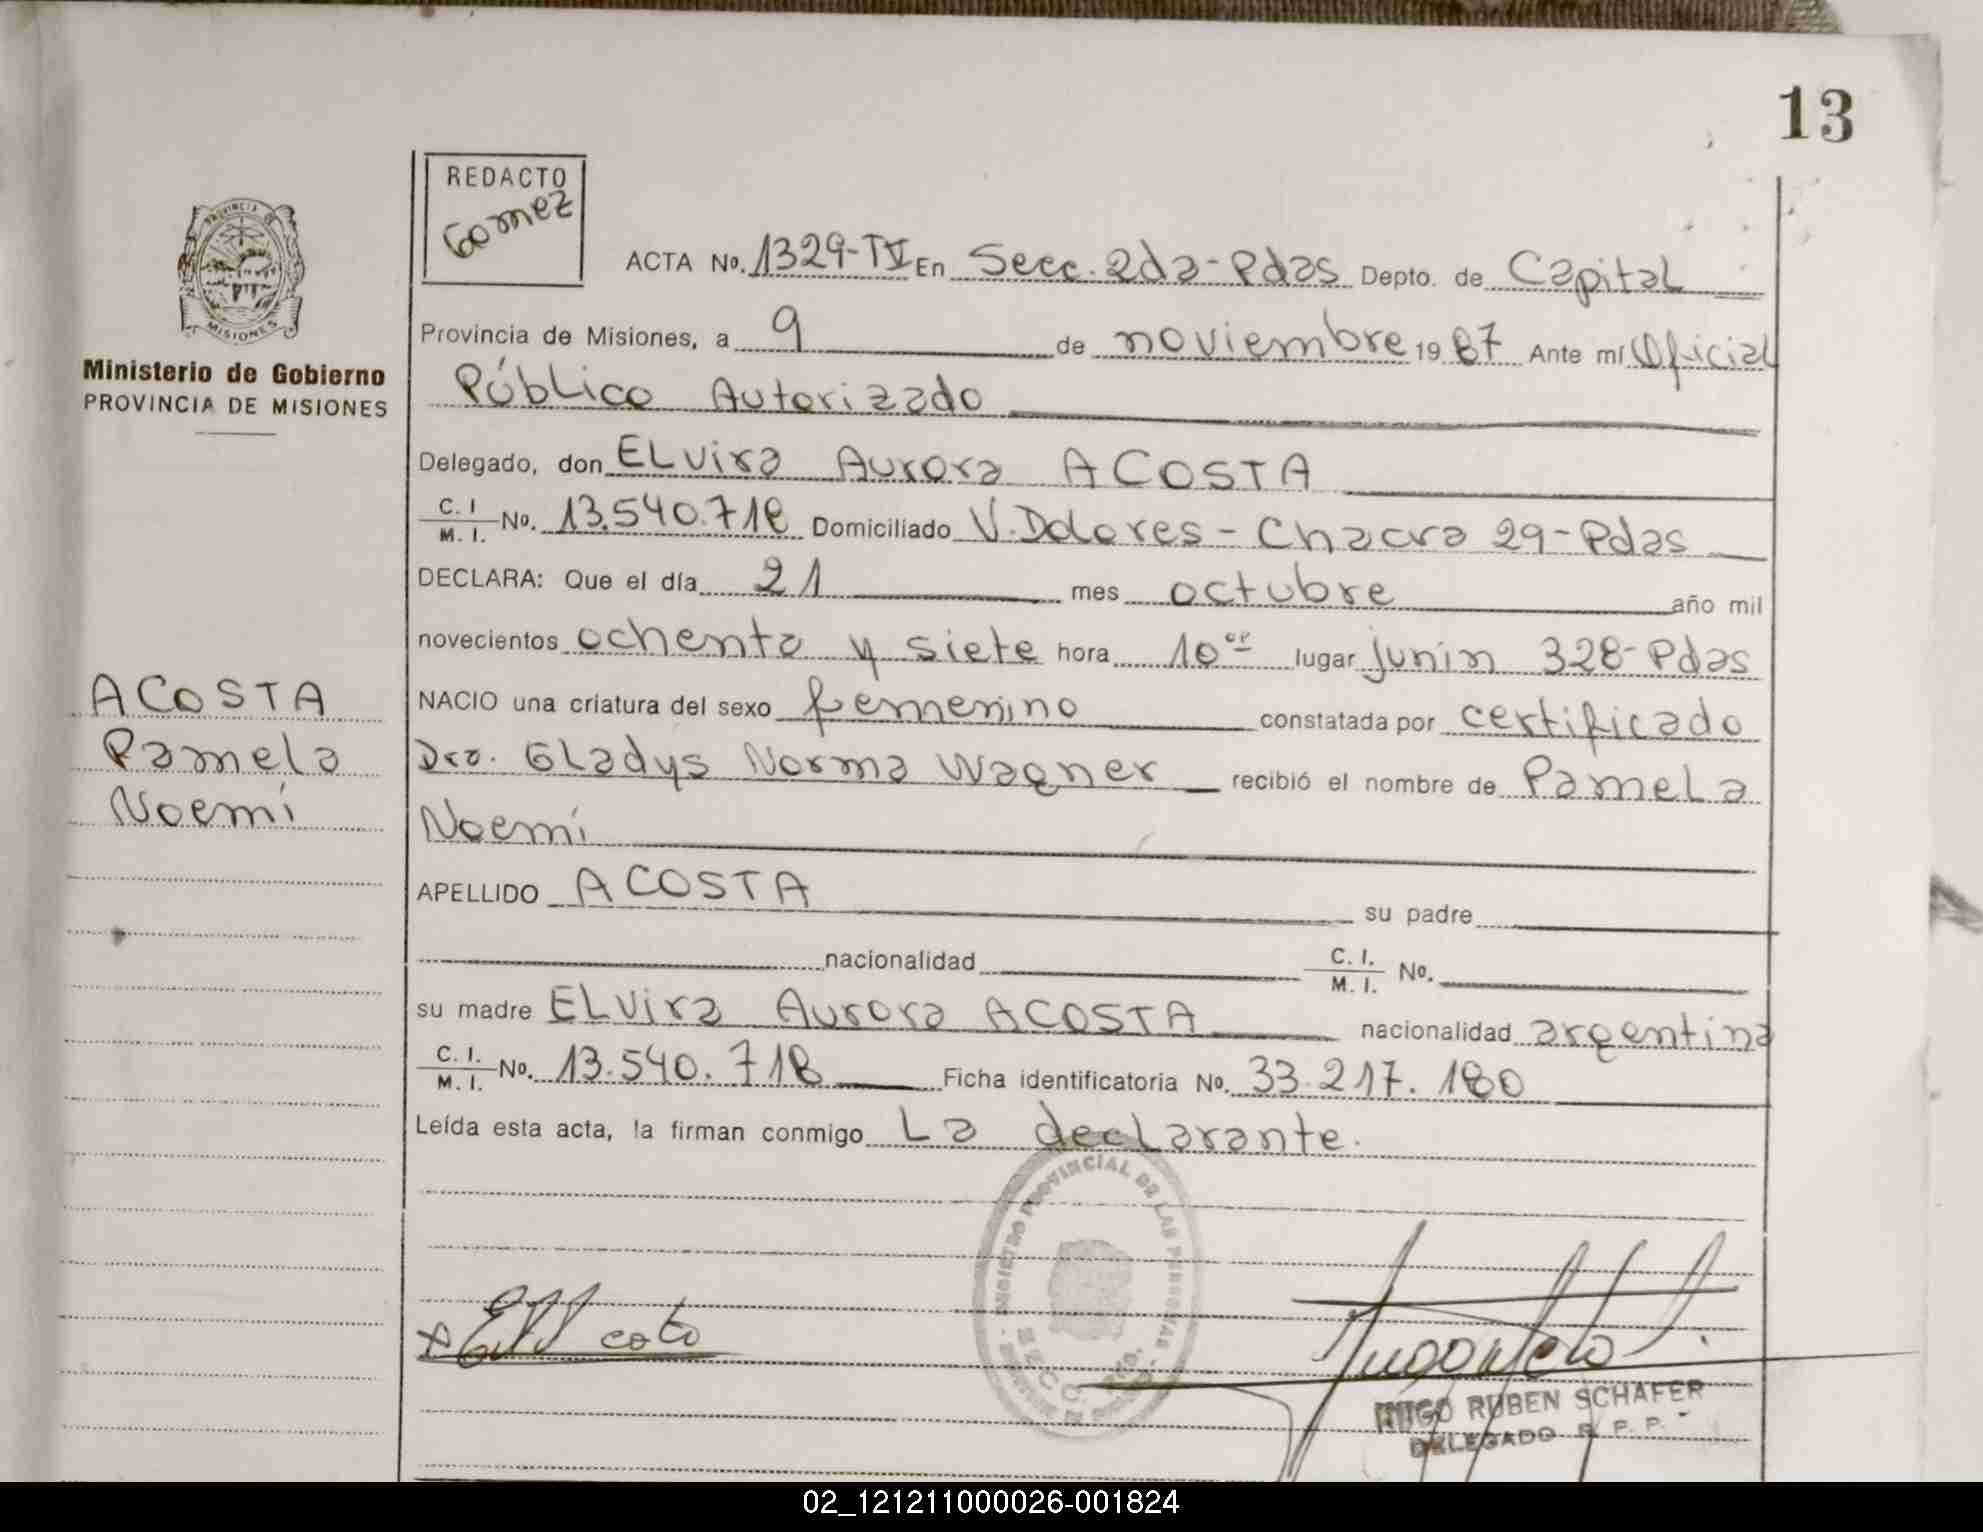 13
REDACTO
Gomez
PROVINCIA DE
MISIONES
Ministerio de Gobierno
PROVINCIA DE MISIONES
ACTA No. 1329-TV En Secc. 2da-Pdas Depto. de Capital
Provincia de Misiones, a 9 de noviembre 1987 Ante mí Oficial
Público Autorizado
Delegado, don ELvira Aurora ACOSTA
C. I / M. I. No. 13.540.718 Domiciliado V. Dolores - Chacra 29-Pdas
DECLARA: Que el día 21 mes octubre año mil
novecientos ochenta y siete hora 10 lugar Junin 328-Pdas
NACIO una criatura del sexo femenino constatada por certificado
Dra. Gladys Norma Wagner recibió el nombre de Pamela
Noemí
APELLIDO ACOSTA su padre
nacionalidad C. I. / M. I. No.
su madre ELvira Aurora ACOSTA nacionalidad argentina
C. I. / M. I. No. 13.540.718 Ficha identificatoria No. 33.217.180
Leída esta acta, la firman conmigo La declarante.
ACOSTA
Pamela
Noemí
PROVINCIAL DE LAS PERSONAS
RUBEN SCHAFER
DELEGADO R. P. P.
02_121211000026-001824